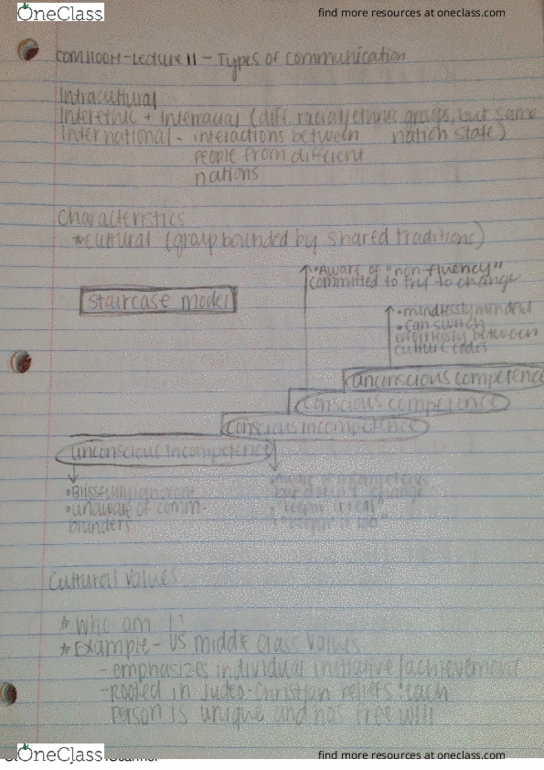 OneClass
find more resources at oneclass.com
COM1100H-Lecture 11 - Types of communication
Intracultural
Interethnic + Interracial (diff. racial/ethnic groups, but same
nation state)
International - interactions between
people from different
nations
Characteristics
*cultural (group bounded by shared traditions)
•Aware of "non-fluency"
committed to try to change
Staircase model
•mindlessly mindful
•can switch
effortlessly between
culture codes
unconscious competence
conscious competence
conscious incompetence
unconscious incompetence
•Blissfully ignorant
•unaware of comm-
blunders
Aware of incompetence
but doesn't change
Cultural values
*Who am I?
*Example - US middle class values
-emphasizes individual initiative/achievement
-rooted in Judeo-Christian beliefs "each
person is unique and has free will
OneClass
Scanner
find more resources at oneclass.com